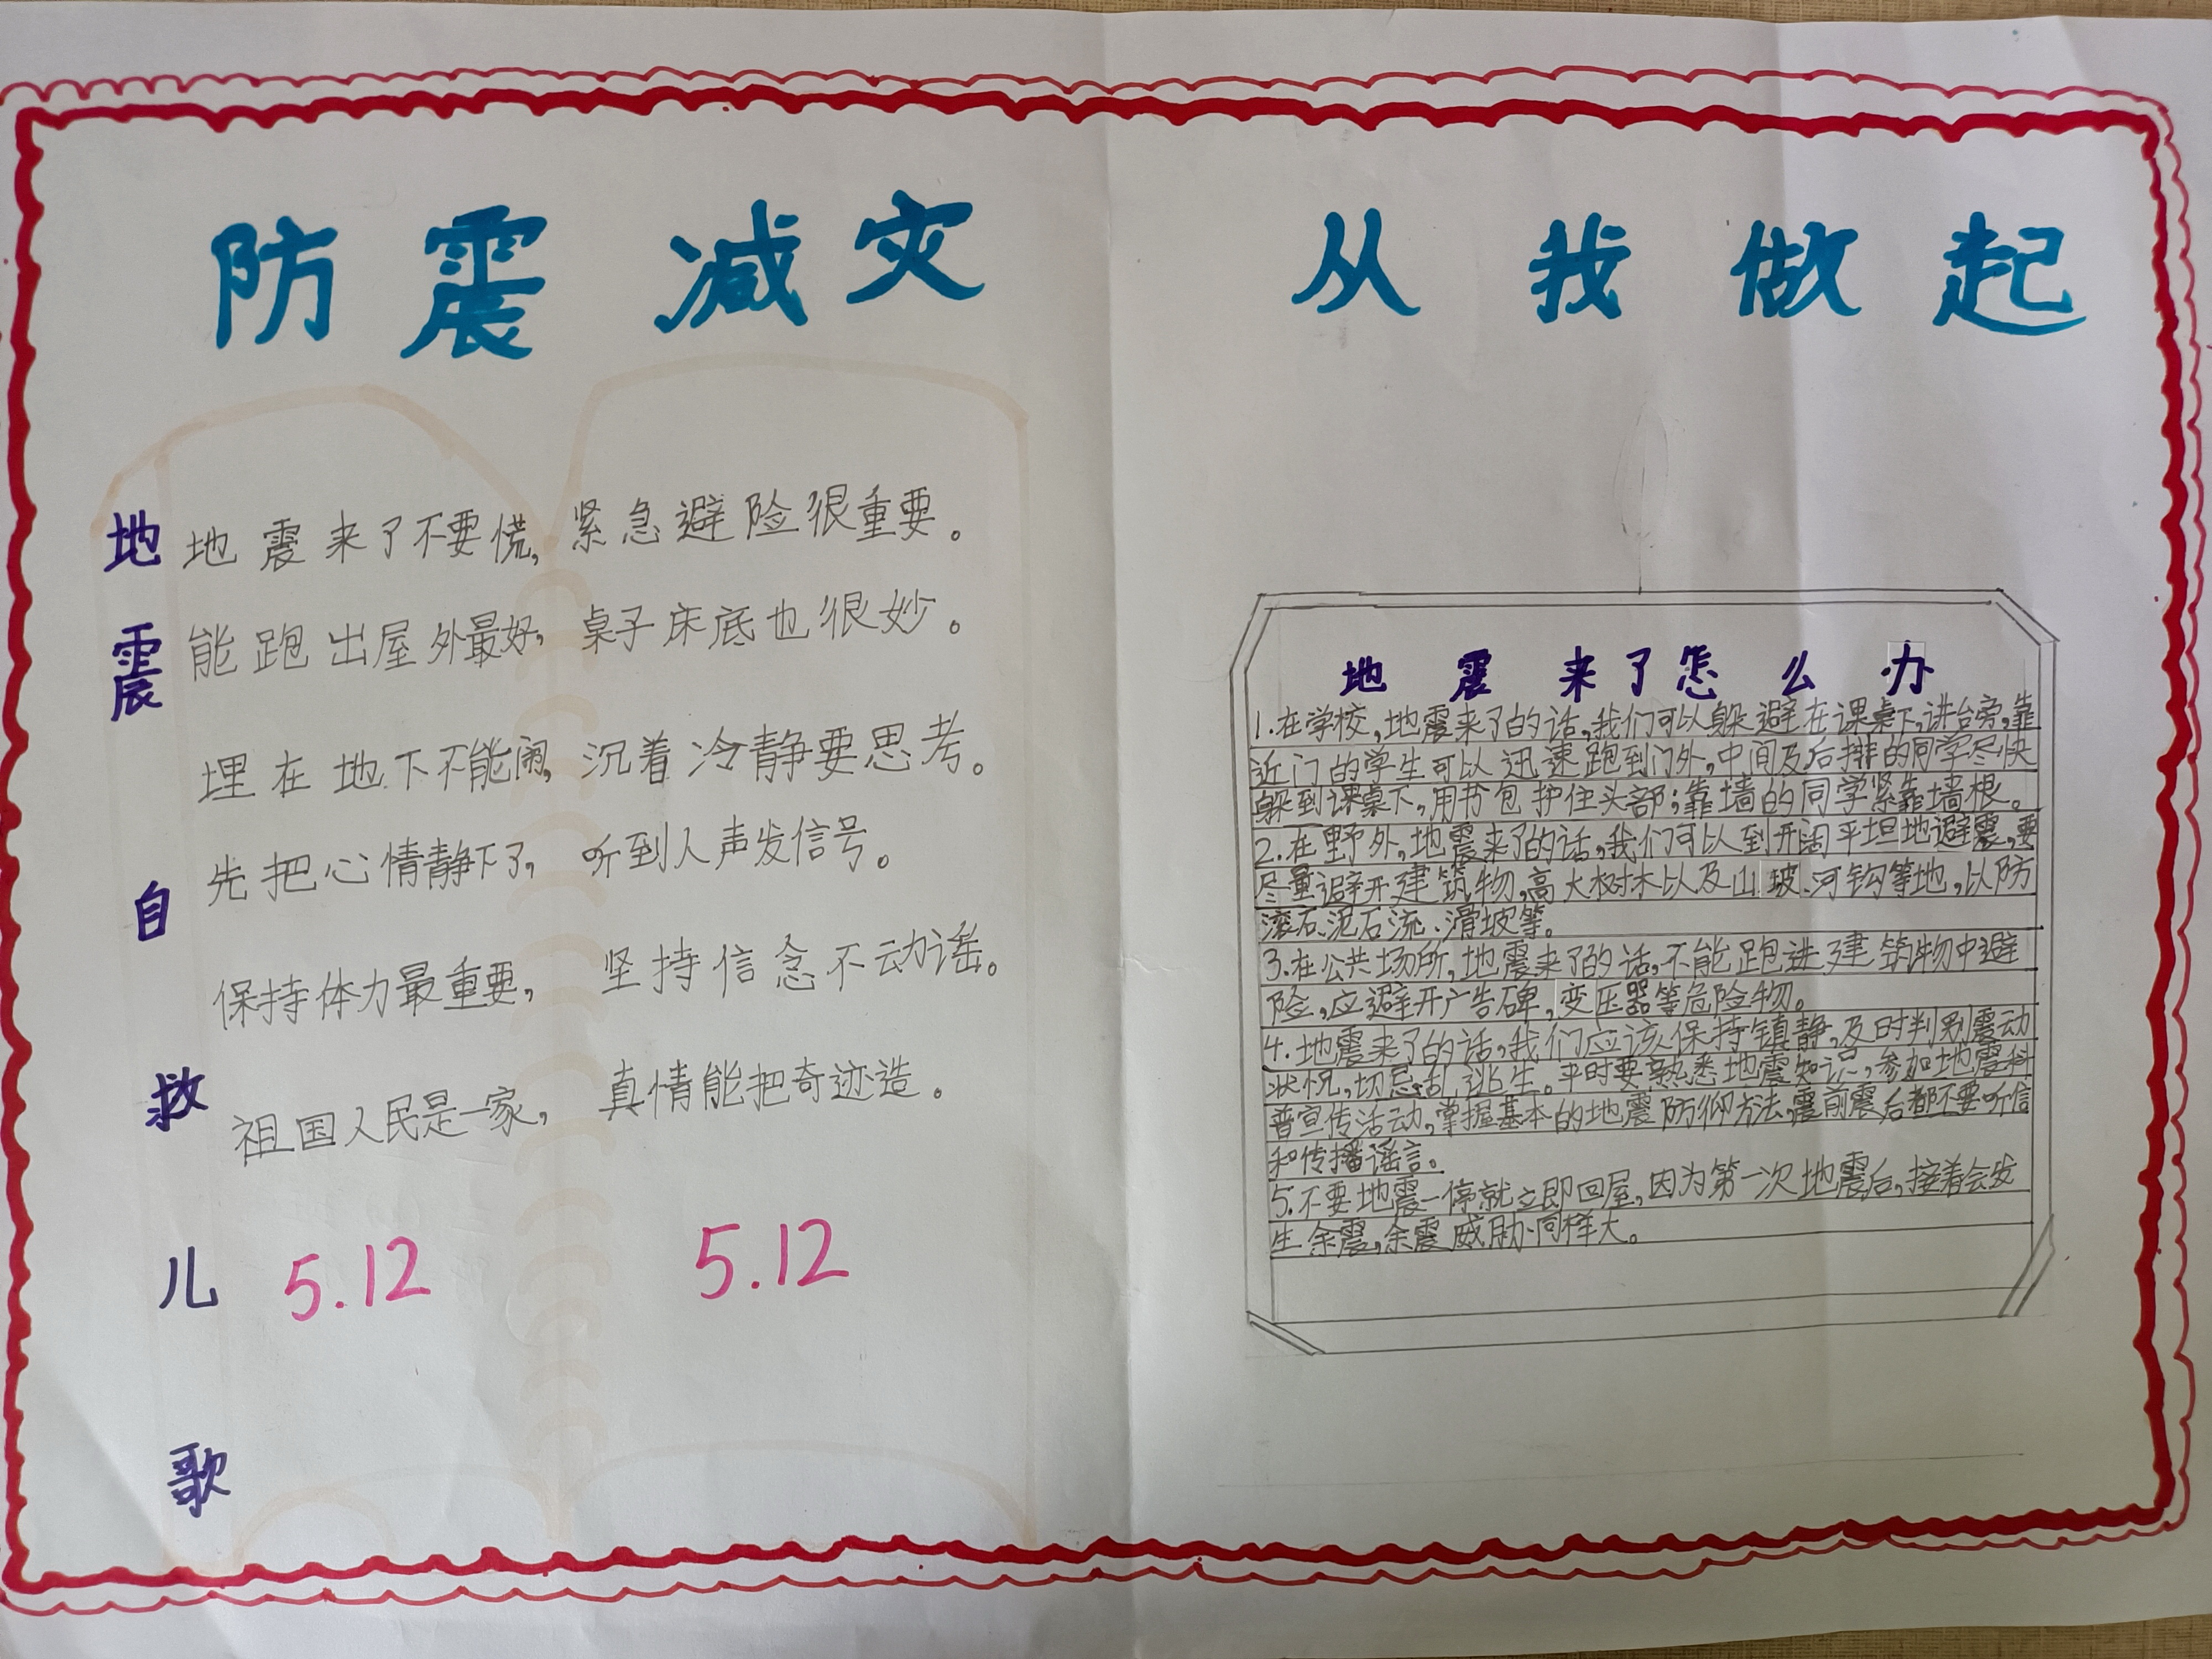 防震减灾 从我做起
地震自救儿歌
地震来了不要慌，紧急避险很重要。
能跑出屋外最好，桌子床底也很妙。
埋在地下不能闹，沉着冷静要思考。
先把心情静下了，听到人声发信号。
保持体力最重要，坚持信念不动谣。
祖国人民是一家，真情能把奇迹造。
5.12 5.12
地震来了怎么办
1.在学校，地震来了的话，我们可以躲避在课桌下，讲台旁，靠
近门的学生可以迅速跑到门外，中间及后排的同学尽快
躲到课桌下，用书包护住头部；靠墙的同学紧靠墙根。
2.在野外，地震来了的话，我们可以到开阔平坦地避震，要
尽量避开建筑物，高大树木以及山坡、河钩等地，以防
滚石、泥石流、滑坡等。
3.在公共场所，地震来了的话，不能跑进建筑物中避
险，应避开广告碑，变压器等危险物。
4.地震来了的话，我们应该保持镇静，及时判别震动
状况，切忌乱逃生。平时要熟悉地震知识，参加地震科
普宣传活动，掌握基本的地震防御方法，震前震后都不要听信
和传播谣言。
5.不要地震一停就立即回屋，因为第一次地震后，接着会发
生余震，余震威胁同样大。